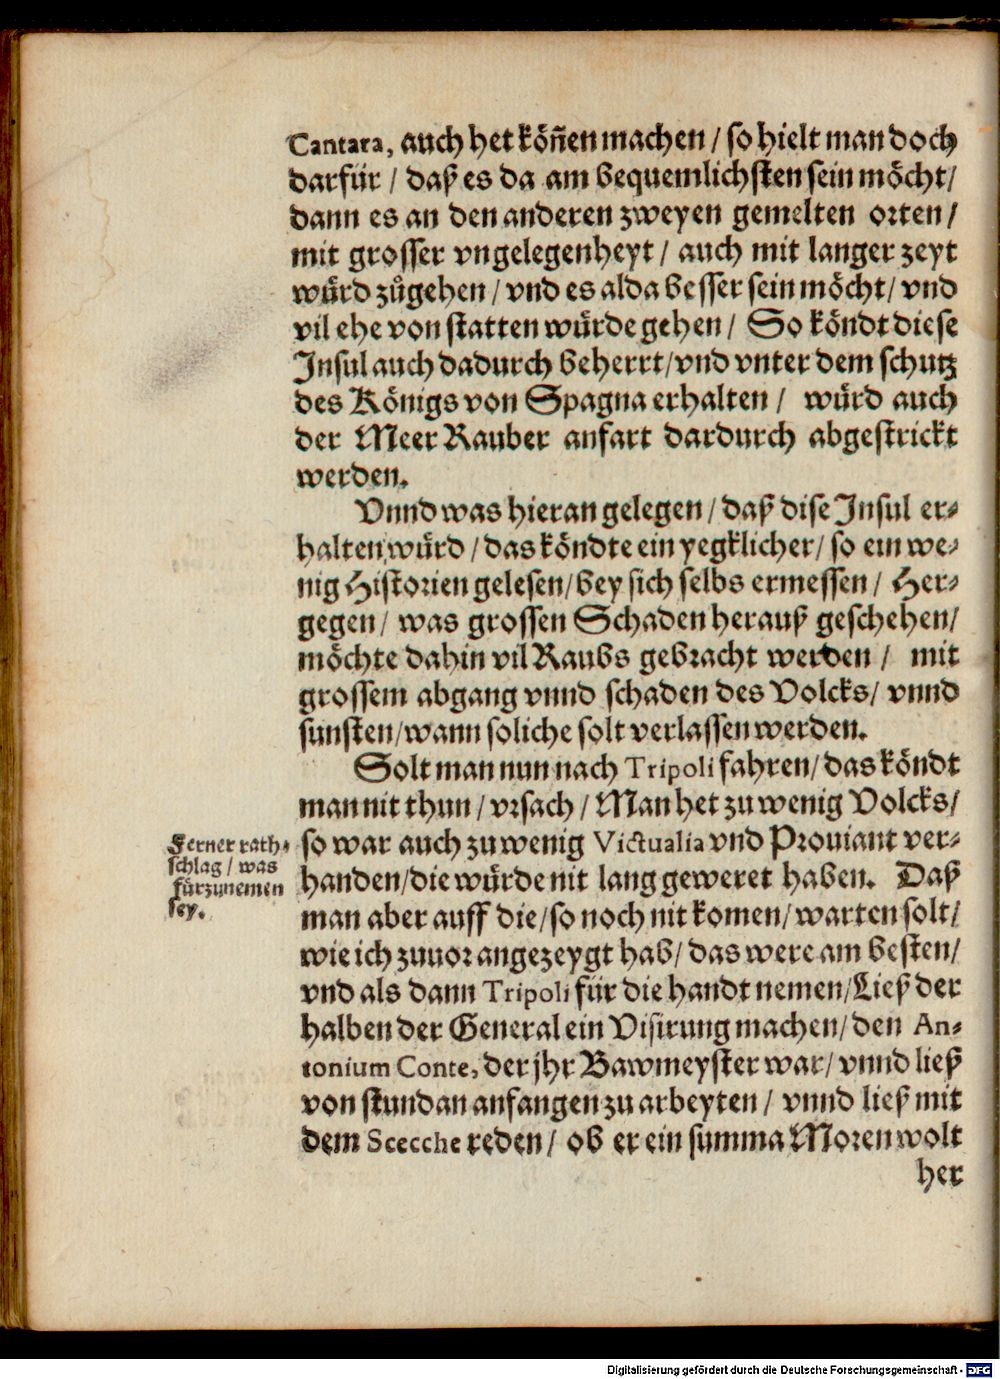 Cantara, auch het köñen machen / so hielt man doch
darfür / daß es da am bequemlichsten sein möcht /
dann es an den anderen zweyen gemelten orten /
mit grosser vngelegenheyt / auch mit langer zeyt
wuͤrd zůgehen / vnd es alda besser sein möcht / vnd
vil ehe von statten wuͤrde gehen / So köndt diese
Insul auch dadurch beherrt / vnd vnter dem schutz
des Königs von Spagna erhalten / wuͤrd auch
der Meer Rauber anfart dardurch abgestrickt
werden.
Vnnd was hieran gelegen / daß dise Insul er⸗
halten wuͤrd / das köndte ein yegklicher / so ein we⸗
nig Historien gelesen / bey sich selbs ermessen / Her⸗
gegen / was grossen Schaden herauß geschehen /
möchte dahin vil Raubs gebracht werden / mit
grossem abgang vnnd schaden des Volcks / vnnd
sunsten / wann soliche solt verlassen werden.
Solt man nun nach Tripoli fahren / das köndt
man nit thun / vrsach / Man het zu wenig Volcks /
so war auch zu wenig Victualia vnd Prouiant ver⸗
handen / die wuͤrde nit lang geweret haben. Daß
man aber auff die / so noch nit komen / warten solt /
wie ich zuuor angezeygt hab / das were am besten /
vnd als dann Tripoli für die handt nemen / Ließ der
halben der General ein Visirung machen / den An⸗
tonium Conte, der jhr Bawmeyster war / vnnd ließ
von stund an anfangen zu arbeyten / vnnd ließ mit
dem Scecche reden / ob er ein summa Moren wolt
her
Ferner rath⸗
schlag / was
fürzunemen
sey.
Digitalisierung gefördert durch die Deutsche Forschungsgemeinschaft - DFG